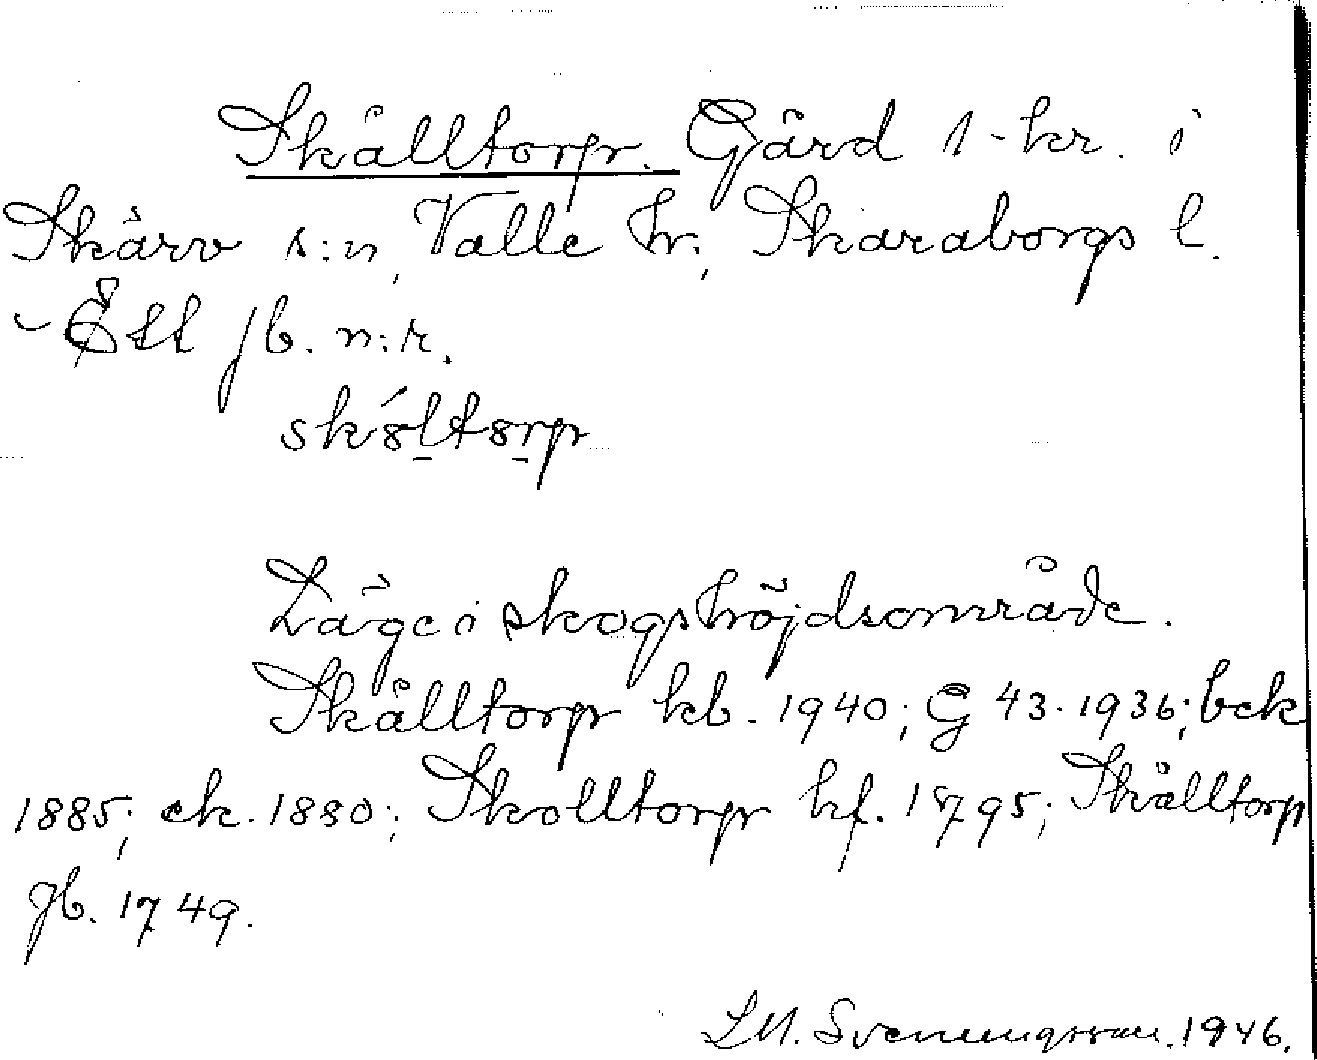 Skålltorp. Gård 1-kr. i
Skärv s:n, Valle hr; Skaraborgs l.
- Ett jb. n:r.
sk´8lt8rp
Läge i skogshöjdsområde.
Skålltorp kb. 1940; G 43. 1936; bek
1885; ek. 1880; Skolltorp kf. 1795; Skålltorp
jb. 1749.
S.M. Svenungsson. 1946.